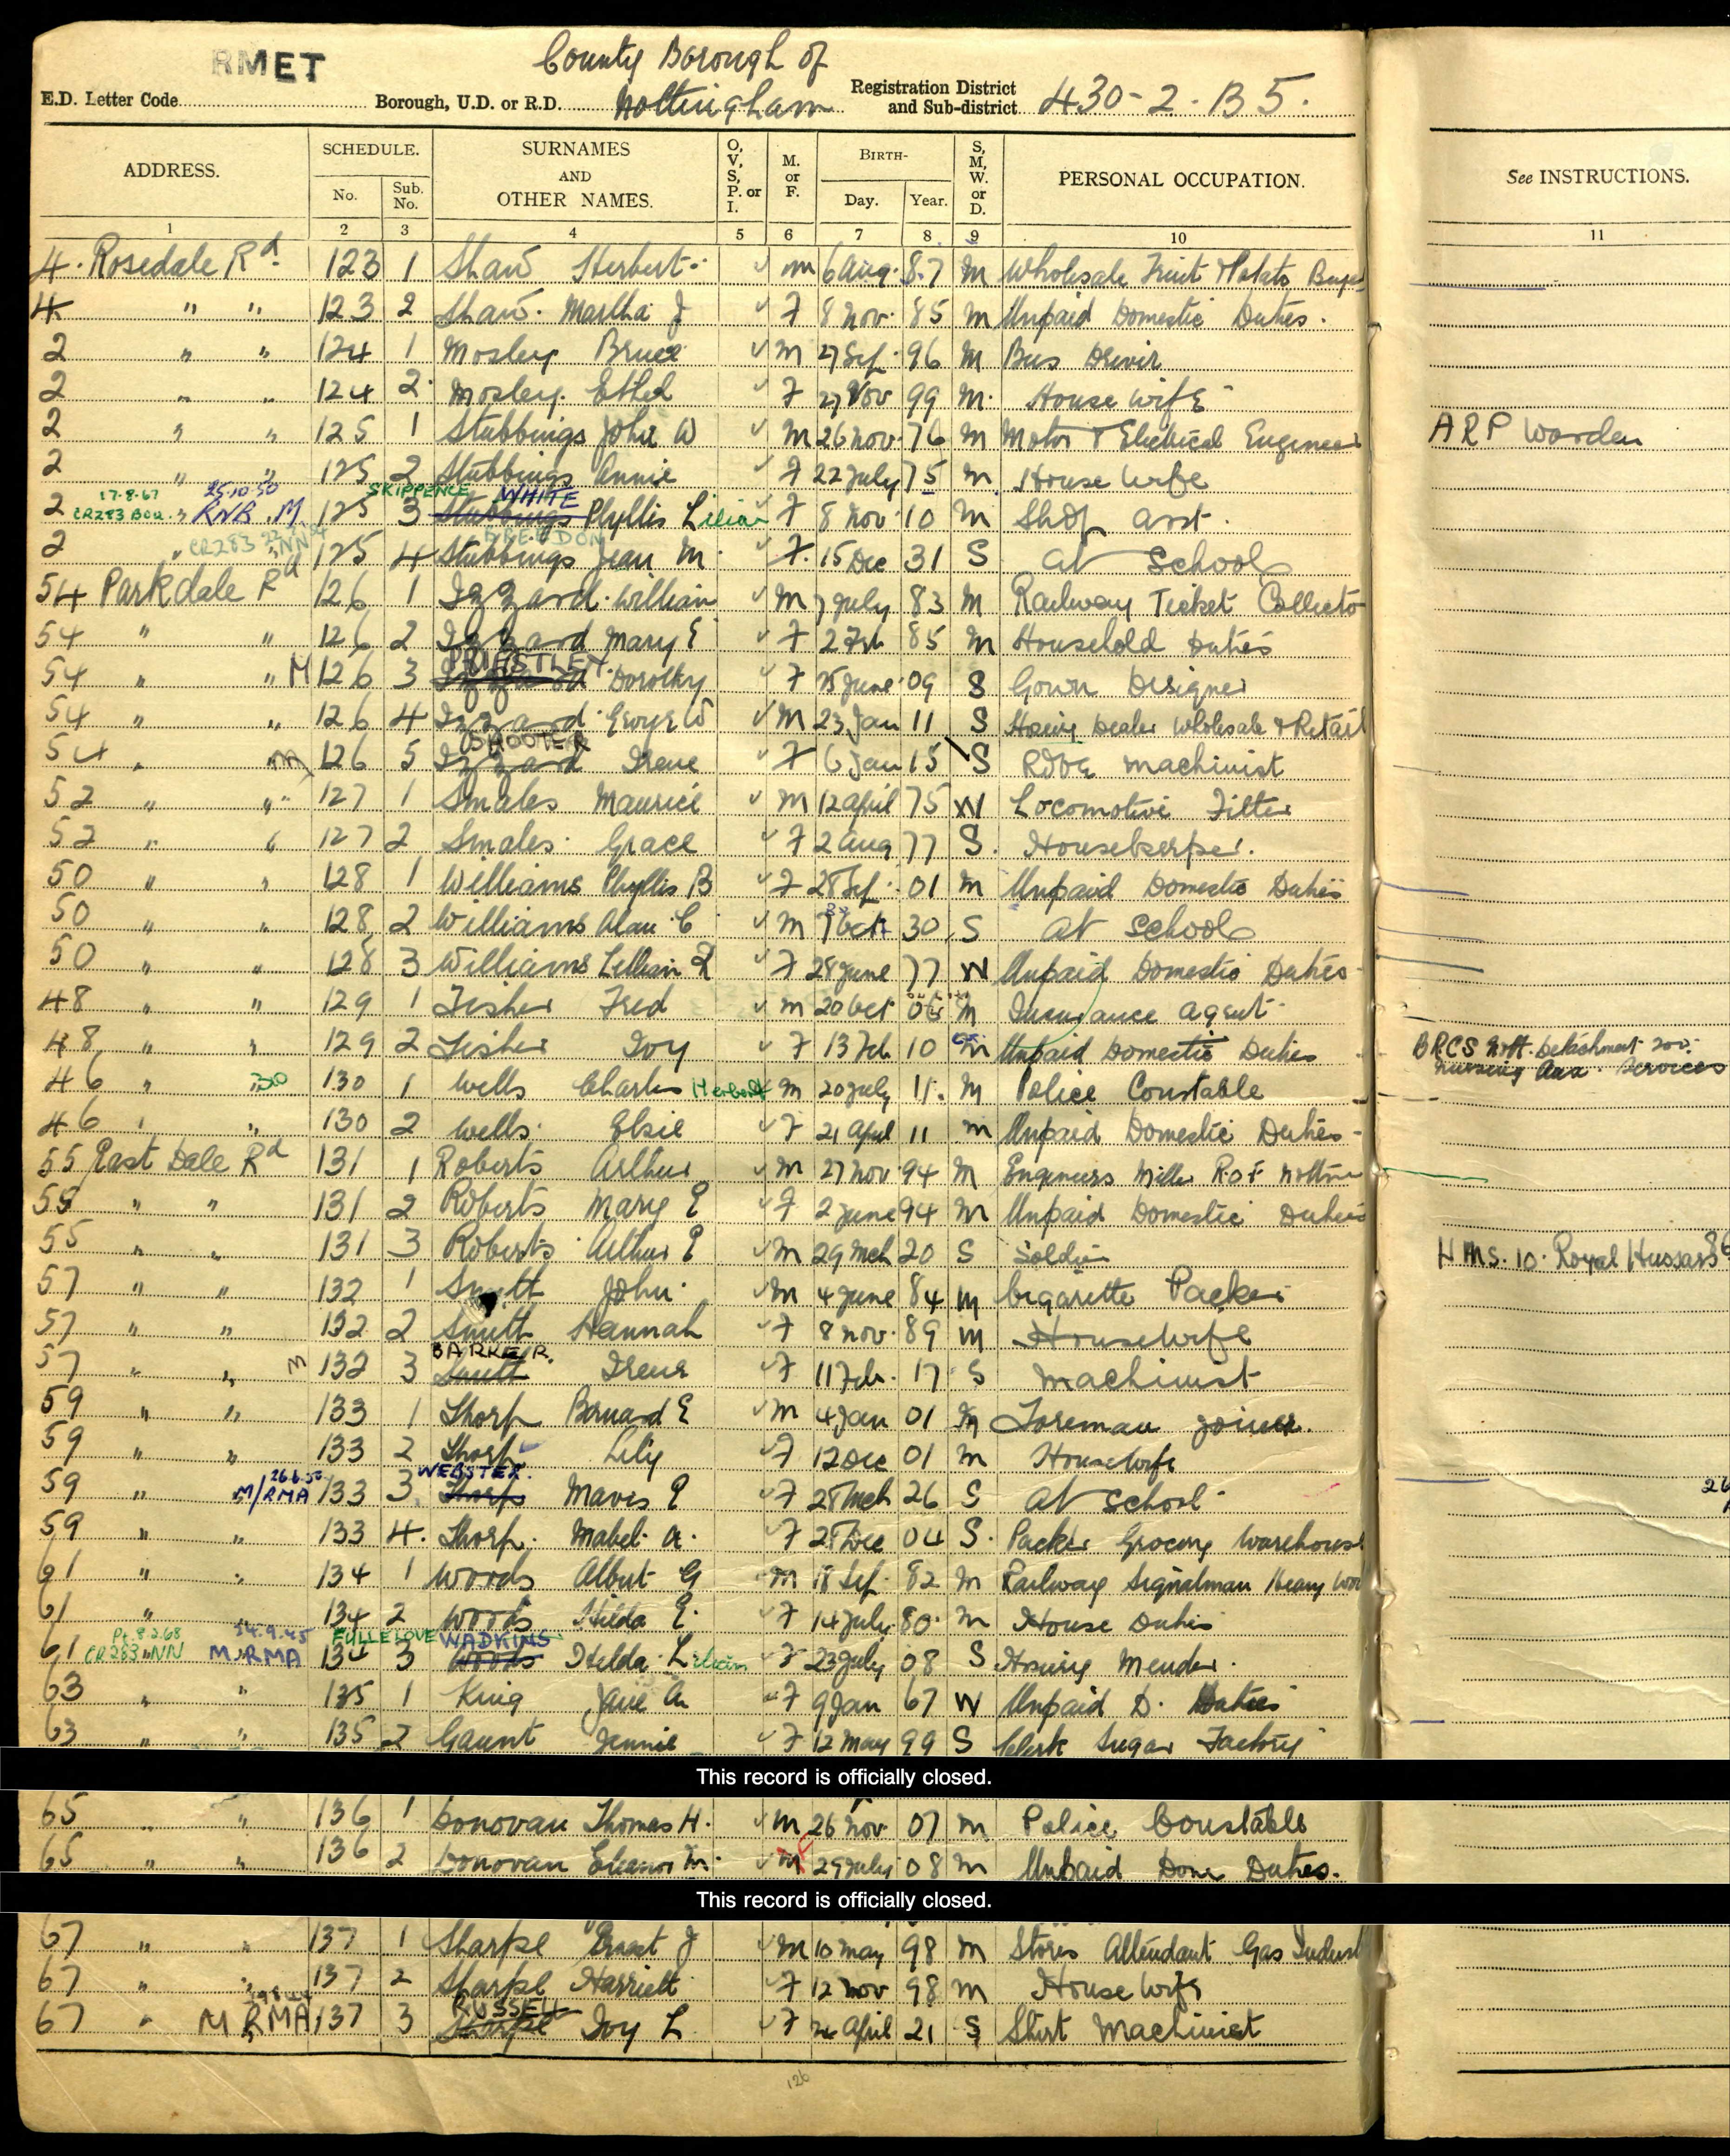 RMET
County Borough of
E.D. Letter Code Borough, U.D. or R.D. Nottingham Registration District and Sub-district 430-2. B5.
ADDRESS. SCHEDULE. No. Sub. No. SURNAMES AND OTHER NAMES. O, V, S, P. or I. M. or F. BIRTH- Day. Year. S, M, W. or D. PERSONAL OCCUPATION. See INSTRUCTIONS.
1 2 3 4 5 6 7 8 9 10 11
4. Rosedale Rd. 123 1 Shaw Herbert m 6 Aug 87 M Wholesale Fruit & Potato Buyer
4 " " 123 2 Shaw Martha J F 8 Nov 85 M Unpaid Domestic Duties.
2 " " 124 1 Mosley Bruce M 27 Sep 96 M Bus Driver
2 " " 124 2 Mosley Ethel F 27 Nov 99 M House wife
2 " " 125 1 Stubbings John W M 26 Nov 76 M Motor & Electrical Engineer ARP Warden
2 " " 125 2 Stubbings Annie F 22 July 75 M House Wife
17-8-67 25-10-50 SKIPPENCE WHITE
2 CR283 " RNB M 125 3 Stubbings Phyllis Lilian F 8 Nov 10 M Shop asst.
CR283 NN BREEDON
2 " 125 4 Stubbings Jean M. F. 15 Dec 31 S at School
54 Parkdale Rd 126 1 Izzard William M 7 July 83 M Railway Ticket Collecto
54 " " 126 2 Izzard Mary E F 2 Feb 85 M Household Duties
PRIESTLEY
54 " " M 126 3 Izzard Dorothy F 25 June 09 S Gown Designer
54 " " 126 4 Izzard George W M 23 Jan 11 S Hosiery Dealer Wholesale & Retail
SHOOTER
54 " " m 126 5 Izzard Irene F 6 Jan 15 S machinist
52 " " 127 1 Smales Maurice M 12 April 75 W Locomotive Fitter
52 " " 127 2 Smales Grace F 2 Aug 77 S. Housekeeper.
50 " " 128 1 Williams Phyllis B F 28 Sep 01 M Unpaid Domestic Duties
50 " " 128 2 Williams Alan C M 7 Oct 30 S at School
50 " " 128 3 Williams Lillian R F 28 June 77 W Unpaid Domestic Duties
48 " " 129 1 Fisher Fred M 20 Oct 06 M Insurance agent
48 " " 129 2 Fisher Ivy F 13 Feb 10 M Unpaid Domestic Duties BRCS Nott. Detachment
Nursing Aux. Services
46 " " 130 1 Wells Charles Herbert M 20 July 11. M Police Constable
46 " " 130 2 Wells Elsie F 21 April 11 M Unpaid Domestic Duties
55 East Dale Rd 131 1 Roberts Arthur M 27 Nov 94 M Engineers Miller R.O.F
55 " " 131 2 Roberts Mary E F 2 June 94 M Unpaid Domestic Duties
55 " " 131 3 Roberts Arthur E M 29 Mch 20 S Soldier H.M.S. 10. Royal Hussars
57 " " 132 1 Smith John M 4 June 84 M Cigarette Packer
57 " " 132 2 Smith Hannah F 8 Nov 89 M Housewife
BARKER.
57 " " m 132 3 Smith Irene F 11 Feb. 17 S Machinist
59 " " 133 1 Thorp Bernard E M 4 Jan 01 M Foreman joiner.
59 " " 133 2 Thorp Lily F 12 Dec 01 M Housewife
26.6.50 WEBSTER.
59 " M/RMA 133 3 Thorp Mavis E F 28 Mch 26 S at School
59 " " 133 4. Thorp. Mabel A. F 28 Dec 04 S. Packer Grocery Warehouse
61 " " 134 1 Woods Albert G M 18 Sep. 82 M Railway Signalman Heavy
61 " 134 2 Woods Hilda E. F 14 July 80 M House Duties
8.2.68 14.9.45 FULLELOVE WADKINS
61 CR283 NN M. RMA 134 3 Woods Hilda Lilian F 23 July 08 S Hosiery Mender.
63 " " 135 1 King Jane A F 9 Jan 67 W Unpaid D. Duties
63 " " 135 2 Gaunt Jennie F 12 May 99 S Clerk Sugar Factory
This record is officially closed.
65 " " 136 1 Donovan Thomas H. M 26 Nov 07 M Police Constable
65 " " 136 2 Donovan Eleanor M. F 29 July 08 M Unpaid Dom Duties.
This record is officially closed.
67 " " 137 1 Sharpe Ernest J M 10 May 98 M Stores Attendant Gas Indust
67 " " 137 2 Sharpe Harriett F 12 Nov 98 M House Wife
RUSSELL
67 " M RMA 137 3 Sharpe Ivy L F 24 April 21 S Shirt Machinist
126